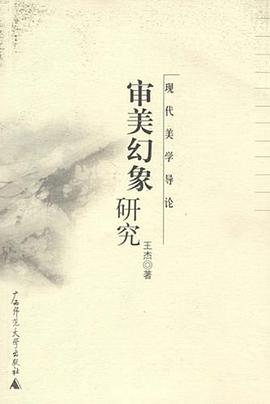 现代美学导论
审美幻象
研究
王杰◎著
广西师范大学出版社